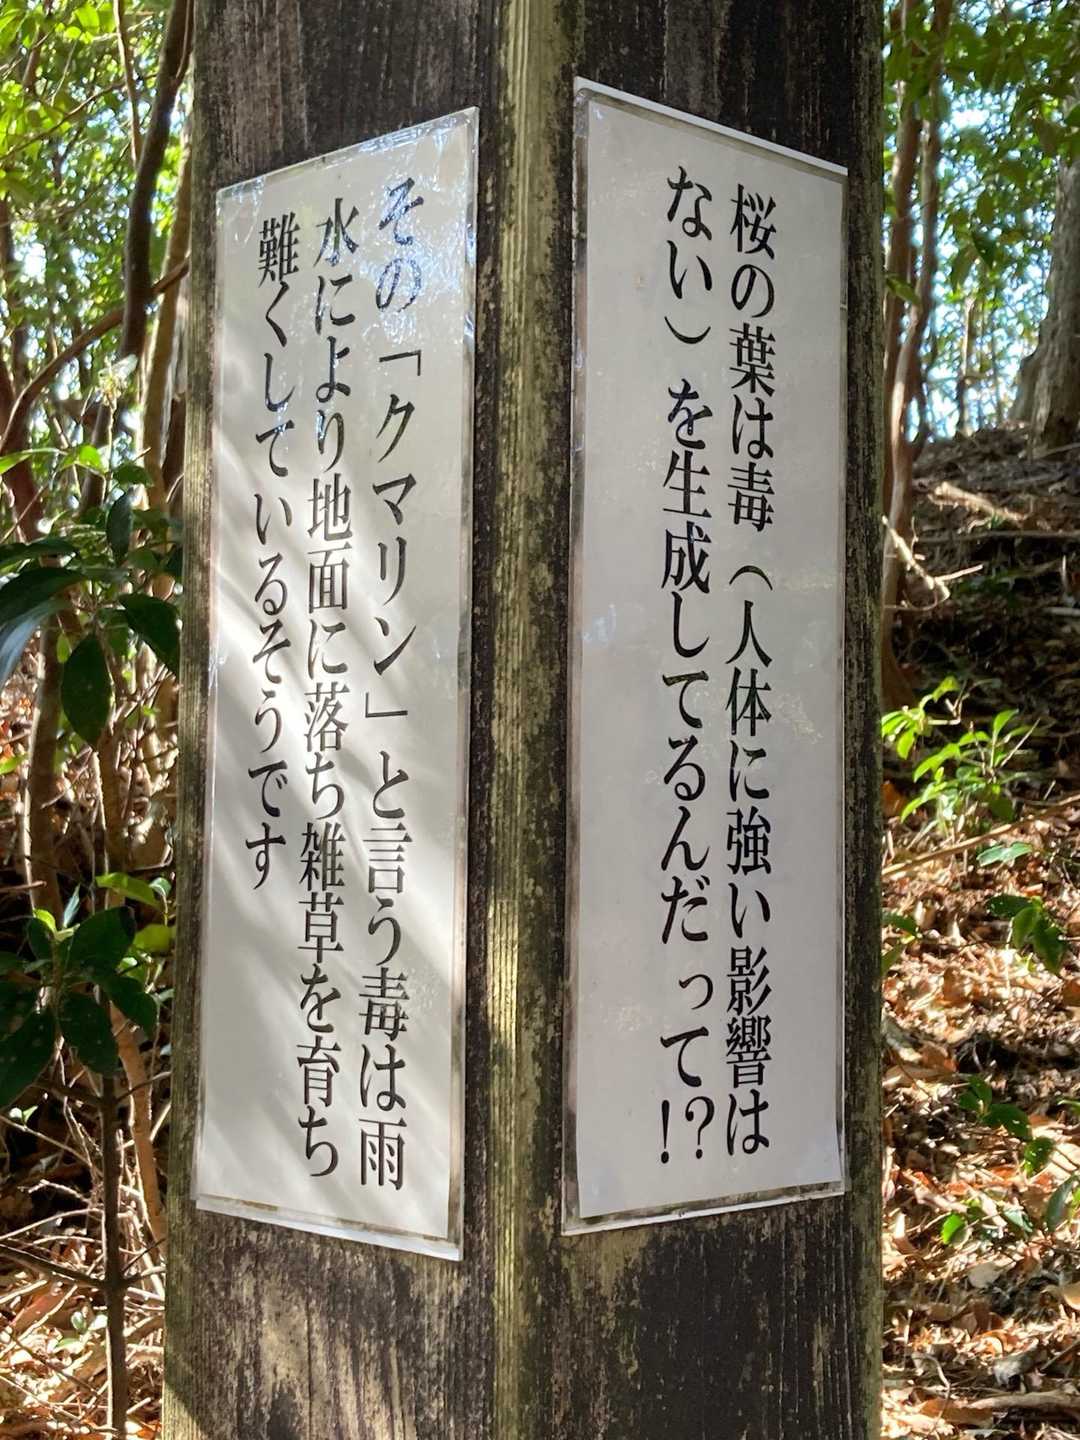 桜の葉は毒（人体に強い影響は
ない）を生成してるんだって!?
その「クマリン」と言う毒は雨
水により地面に落ち雑草を育ち
難くしているそうです